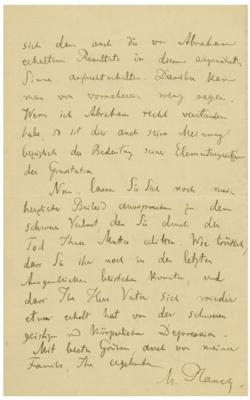 sich dann auch die von Abraham
erhaltenen Resultate in diesem
Sinne aufrechterhalten. Darüber kann
man von vorneherein wenig sagen.
Wenn ich Abraham recht verstanden
habe, so ist dies auch seine Meinung
bezüglich der Bedeutung seiner
der Gravitation.
Nun lassen Sie Sich noch mein
herzliches Beileid aussprechen zu dem
schweren Verlust, den Sie durch den
Tod Ihrer Mutter erlitten. Wie tröstlich,
dass Sie ihr noch in den letzten
Augenblicken beistehen konnten, und
dass Ihr Herr Vater sich wieder
etwas erholt hat von der schweren
geistigen und körperlichen Depression.
Mit besten Grüssen, auch von meiner
Familie, Ihr ergebenster
M. Planck.